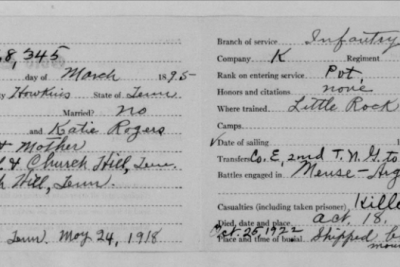 8,345
day of March 1895-
Hawkins State of Tenn
Married? no
and Katie Rogers
& Mother
& Church Hill, Tenn.
Hill, Tenn.
Tenn. May 24, 1918
Branch of service Infantry
Company K Regiment
Rank on entering service Pvt,
Honors and citations none
Where trained Little Rock
Camps
Date of sailing
Transfers Co. E, 2nd T. N. G. to
Battles engaged in Meuse-Arg
Casualties (including taken prisoner) Kille
Died, date and place Oct. 18.
Oct. 25, 1922
Place and time of burial Shipped